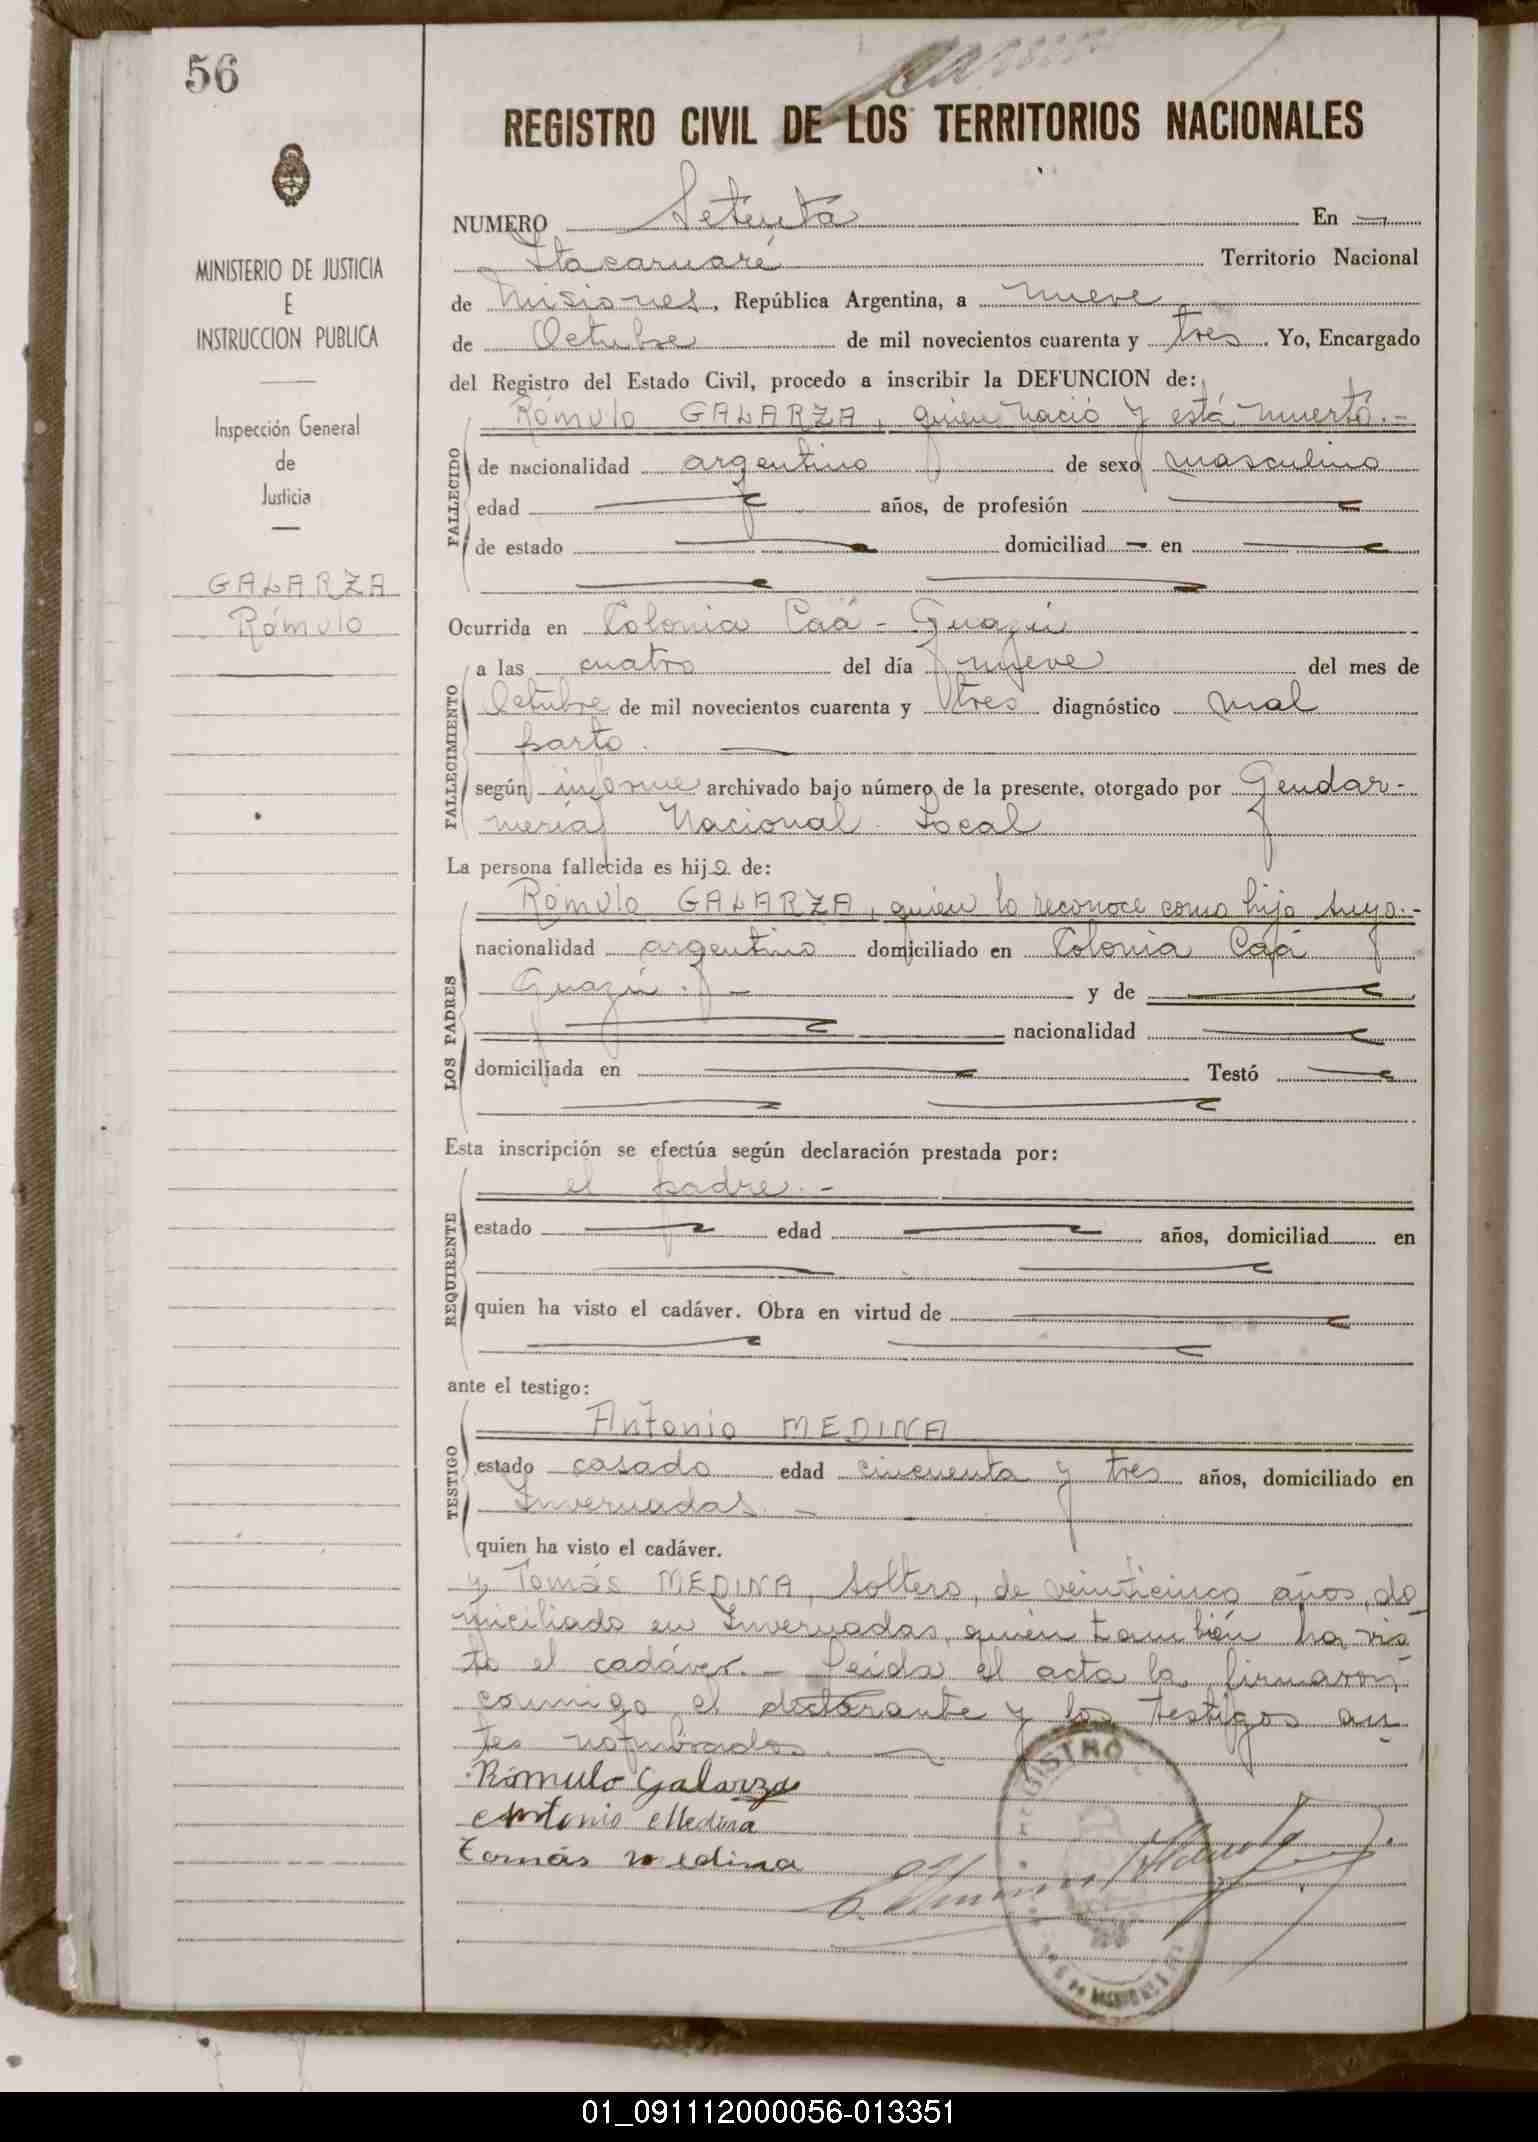 56
REGISTRO CIVIL DE LOS TERRITORIOS NACIONALES
MINISTERIO DE JUSTICIA
E
INSTRUCCION PUBLICA
Inspección General
de
Justicia
GALARZA
Rómulo
NUMERO Setenta En
Itacaruaré Territorio Nacional
de Misiones, República Argentina, a nueve
de Octubre de mil novecientos cuarenta y tres. Yo, Encargado
del Registro del Estado Civil, procedo a inscribir la DEFUNCION de:
Rómulo GALARZA, quien nació y está muerto.-
FALLECIDO
de nacionalidad argentino de sexo masculino
edad años, de profesión
de estado domiciliad en
Ocurrida en Colonia Caá-Guazú
FALLECIMIENTO
a las cuatro del día nueve del mes de
Octubre de mil novecientos cuarenta y tres diagnóstico mal
parto.
según informe archivado bajo número de la presente, otorgado por Gendar-
mería Nacional Local
La persona fallecida es hijo de:
LOS PADRES
Rómulo GALARZA, quien lo reconoce como hijo suyo.-
nacionalidad argentino domiciliado en Colonia Caá
Guazú.- y de
nacionalidad
domiciliada en Testó
Esta inscripción se efectúa según declaración prestada por:
REQUIRENTE
el padre.-
estado edad años, domiciliad en
quien ha visto el cadáver. Obra en virtud de
ante el testigo:
TESTIGO
Antonio MEDINA
estado casado edad cincuenta y tres años, domiciliado en
Invernadas.-
quien ha visto el cadáver.
y Tomás MEDINA, soltero, de veinticinco años, do
miciliado en Invernadas, quien también ha vis-
to el cadáver.- Leída el acta la firmaron
conmigo el declarante y los testigos an-
tes nombrados.
Rómulo Galarza
Antonio Medina
Tomás Medina
REGISTRO
01_091112000056-013351